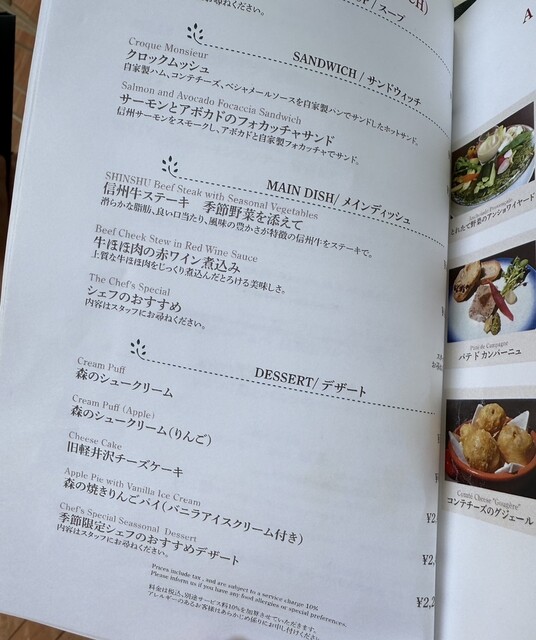 / スープ
ねください。
SANDWICH / サンドウィッチ
Croque Monsieur
クロックムッシュ
自家製ハム、コンテチーズ、ベシャメールソースを自家製パンでサンドしたホットサンド。
Salmon and Avocado Focaccia Sandwich
サーモンとアボカドのフォカッチャサンド
信州サーモンをスモークし、アボカドと自家製フォカッチャでサンド。
MAIN DISH/ メインディッシュ
SHINSHU Beef Steak with Seasonal Vegetables
信州牛ステーキ 季節野菜を添えて
滑らかな脂肪、良い口当たり、風味の豊かさが特徴の信州牛をステーキで。
Beef Cheek Stew in Red Wine Sauce
牛ほほ肉の赤ワイン煮込み
上質な牛ほほ肉をじっくり煮込んだとろける美味しさ。
The Chef's Special
シェフのおすすめ
内容はスタッフにお尋ねください。
DESSERT/ デザート
Cream Puff
森のシュークリーム
Cream Puff (Apple)
森のシュークリーム(りんご)
Cheese Cake
旧軽井沢チーズケーキ
Apple Pie with Vanilla Ice Cream
森の焼きりんごパイ(バニラアイスクリーム付き)
¥2
Chef's Special Seassonal Dessert
季節限定シェフのおすすめデザート
¥2,
内容はスタッフにお尋ねください。
¥2,2
Prices include tax , and are subject to a service charge 10%
Please inform us if you have any food allergies or special preferences.
料金は税込、別途サービス料10%を加算させていただきます。
アレルギーのあるお客様はあらかじめ係りにお申し付けください。
A
とれたて野菜のアンショワイヤード
Pâté de Campagne
パテ ド カンパーニュ
Comté Cheese "Gougère"
コンテチーズのグジェール